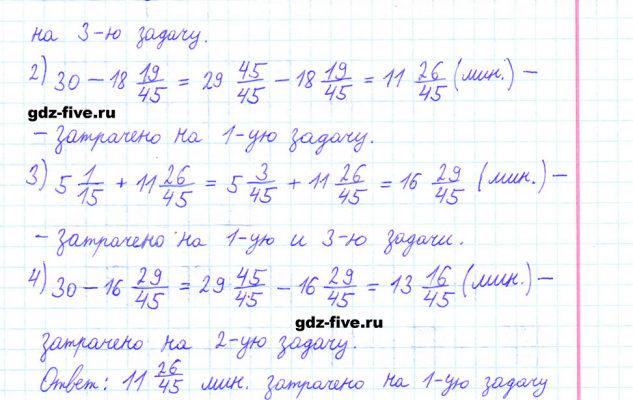 на 3-ю задачу.
2) 30 − 18 19/45 = 29 45/45 − 18 19/45 = 11 26/45 (мин.) −
gdz-five.ru
− затрачено на 1-ую задачу.
3) 5 1/15 + 11 26/45 = 5 3/45 + 11 26/45 = 16 29/45 (мин.) −
− затрачено на 1-ую и 3-ю задачи.
4) 30 − 16 29/45 = 29 45/45 − 16 29/45 = 13 16/45 (мин.) −
gdz-five.ru
затрачено на 2-ую задачу.
Ответ: 11 26/45 мин. затрачено на 1-ую задачу